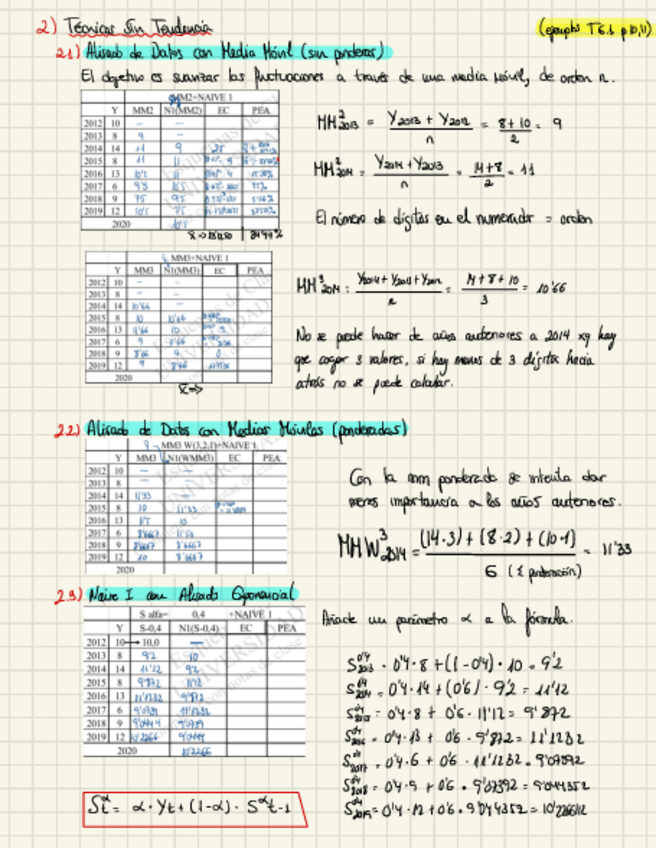 2) Técnicas Sin Tendencia
(ejemplo T6.1 p10,11)
2.1) Alisado de Datos con Media Móvil (sin ponderar)
El objetivo es suavizar las fluctuaciones a través de una media móvil, de orden n.
MM2+NAIVE 1
Y MM2 N1(MM2) EC PEA
2012 10 — —
2013 8 9 —
2014 14 11 9 25
2015 8 11 11
2016 13 10'5 11
2017 6 9'5 10'5
2018 9 7'5 9'5
2019 12 10'5 7'5
2020 10'5
MM²2013 = Y2013 + Y2012 / n = 8+10 / 2 = 9
MM²2014 = Y2014 + Y2013 / n = 14+8 / 2 = 11
El número de dígitos en el numerador = orden
MM3+NAIVE 1
Y MM3 N1(MM3) EC PEA
2012 10 — —
2013 8 — —
2014 14 10'66 —
2015 8 10 10'66
2016 13 11'66 10 9
2017 6 9 11'66
2018 9 9 0
2019 12 9
2020
x̄ =>
MM³2014 = Y2014 + Y2013 + Y2012 / n = 14+8+10 / 3 = 10'66
No se puede hacer de años anteriores a 2014 xq hay
que coger 3 valores, si hay menos de 3 dígitos hacia
atrás no se puede calcular.
2.2) Alisado de Datos con Medias Móviles (ponderadas)
MM3 W(3,2,1)+NAIVE 1
Y MM3 N1(WMM3) EC PEA
2012 10 — —
2013 8 — —
2014 14 11'33 —
2015 8 10 11'33
2016 13 11'5 10
2017 6 8'6667 11'50
2018 9 8'6667 8'6667
2019 12 10 8'6667
2020
Con la mm ponderada se intenta dar
menos importancia a los años anteriores.
MMW³2014 = (14·3) + (8·2) + (10·1) / 6 (Σ ponderación) = 11'33
2.3) Naive I con Alisado Exponencial
S alfa= 0,4 +NAIVE 1
Y S-0,4 N1(S-0,4) EC PEA
2012 10 10,0 —
2013 8 9'2 10
2014 14 11'12 9'2
2015 8 9'872 11'12
2016 13 11'1232 9'872
2017 6 9'0739 11'1232
2018 9 9'0444 9'0739
2019 12 10'2266 9'0444
2020 10'2266
Añade un parámetro α a la fórmula.
S0'4 2013 = 0'4·8 + (1-0'4)·10 = 9'2
S0'4 2014 = 0'4·14 + (0'6)·9'2 = 11'12
S0'4 2015 = 0'4·8 + 0'6·11'12 = 9'872
S0'4 2016 = 0'4·13 + 0'6·9'872 = 11'1232
S0'4 2017 = 0'4·6 + 0'6·11'1232 = 9'07392
S0'4 2018 = 0'4·9 + 0'6·9'07392 = 9'044352
S0'4 2019 = 0'4·12 + 0'6·9'044352 = 10'2266112
Sαt = α·Yt + (1-α)·Sαt-1